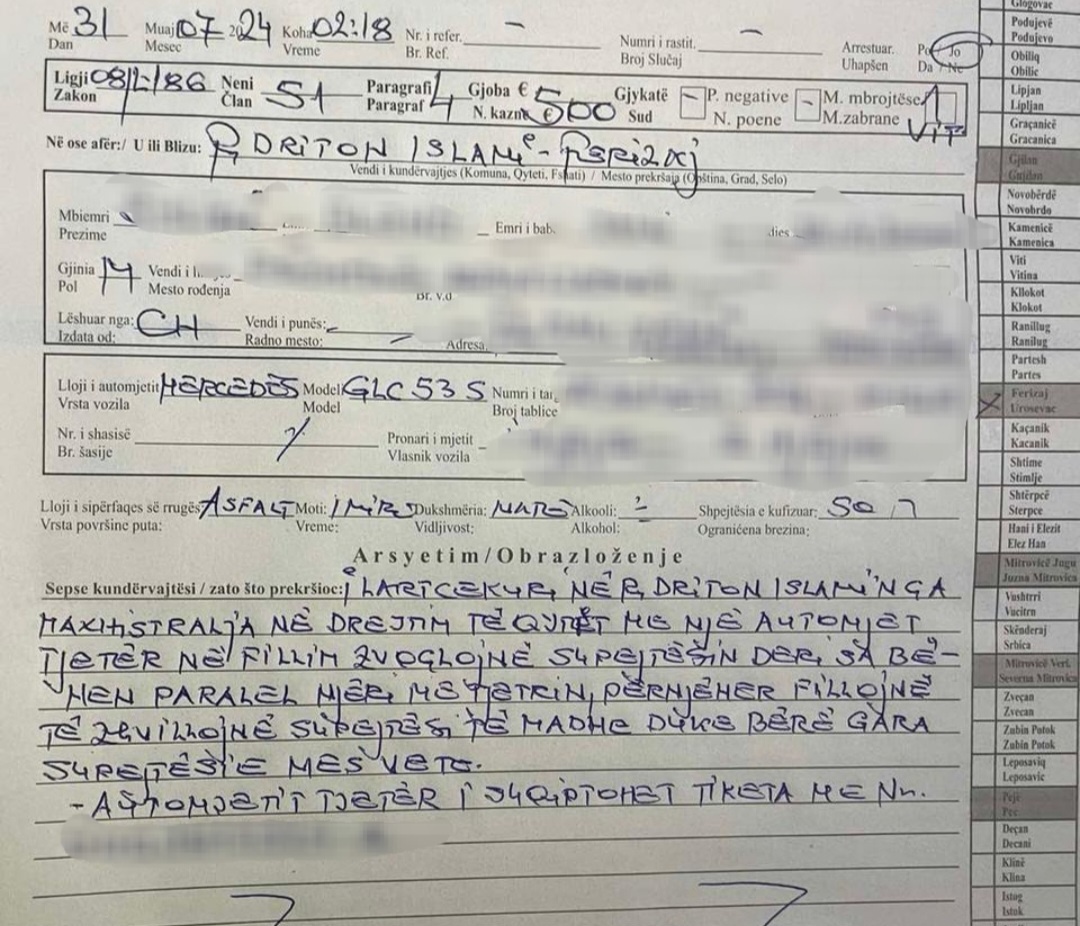 Më 31 Muaj 07 2024 Koha 02:18 Nr. i refer. - Numri i rastit. - Arrestuar. Po Jo
Dan Mesec Vreme Br. Ref. Broj Slučaj Uhapšen Da / Ne
Ligji 08/L-186 Neni 51 Paragrafi 4 Gjoba € 500 Gjykatë - P. negative - M. mbrojtëse 1 VIT
Zakon Član Paragraf N. kazne € Sud N. poene M.zabrane
Në ose afër:/ U ili Blizu: R, DRITON ISLAMI -
Vendi i kundërvajtjes (Komuna, Qyteti, Fshati) / Mesto prekršaja (Opština, Grad, Selo)
Mbiemri Emri i bab.
Prezime
Gjinia M Vendi i l
Pol Mesto rođenja
Lëshuar nga: CH Vendi i punës: -
Izdata od: Radno mesto: Adresa
Lloji i automjetit MERCEDES Model GLC 53 S Numri i tar
Vrsta vozila Model Broj tablice
Nr. i shasisë Pronari i mjetit
Br. šasije Vlasnik vozila
Lloji i sipërfaqes së rrugës ASFALT Moti: I MIRË Dukshmëria: NATË Alkooli: - Shpejtësia e kufizuar: 50
Vrsta površine puta: Vreme: Vidljivost: Alkohol: Ograničena brezina:
Arsyetim/Obrazloženje
Sepse kundërvajtësi / zato što prekršioc: I LARTCEKUR, NË R, DRITON ISLAMI NGA
MAXHISTRALJA NË DREJTIM TË QYTETIT ME NJË AUTOMJET
TJETËR NË FILLIM ZVOGLOJNË SHPEJTËSIN DERI SA BË-
HEN PARALEL NJËRI ME TJETRIN, PËRNJEHER FILLOJNË
TË ZHVILLOJNË SHPEJTËSI TË MADHE DUKE BËRË GARA
SHPEJTËSIE MES VETE.
- AUTOMJETIT TJETËR I SHQIPTOHET TIKETA ME Nr.
Glogovac
Podujevë
Podujevo
Obiliq
Obilic
Lipjan
Lipljan
Graçanicë
Gracanica
Gjilan
Gnjilan
Novobërdë
Novobrdo
Kamenicë
Kamenica
Viti
Vitina
Kllokot
Klokot
Ranillug
Ranilug
Partesh
Partes
Ferizaj
Urosevac
Kaçanik
Kacanik
Shtime
Stimlje
Shtërpcë
Sterpce
Hani i Elezit
Elez Han
Mitrovicë Jugu
Juzna Mitrovica
Vushtrri
Vucitrn
Skënderaj
Srbica
Mitrovicë Veri.
Severna Mitrovica
Zveçan
Zvecan
Zubin Potok
Zubin Potok
Leposaviq
Leposavic
Pejë
Pec
Deçan
Decani
Klinë
Klina
Istog
Istok